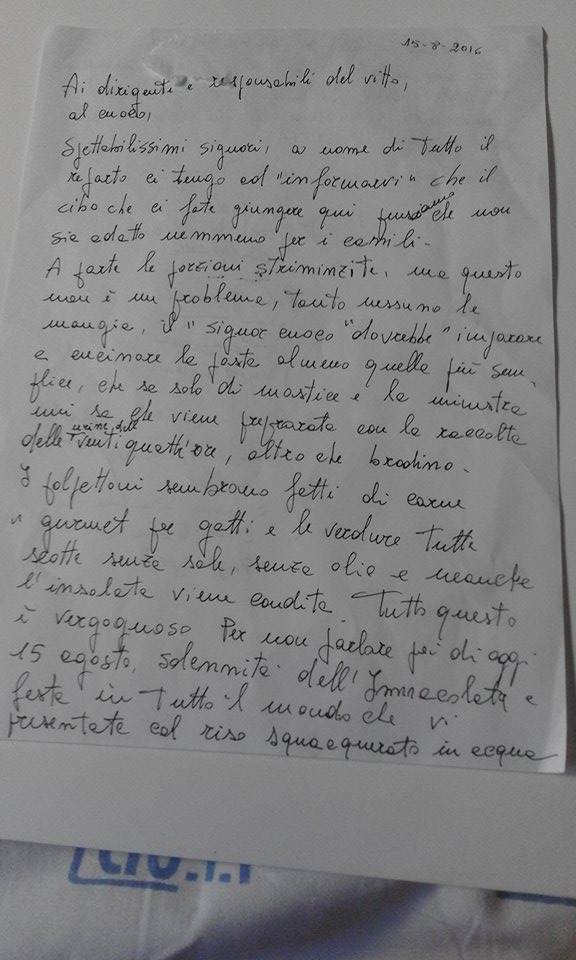 15-8-2016
Ai dirigenti e responsabili del vitto,
al cuoco,
Spettabilissimi signori, a nome di tutto il
reparto ci tengo ad "informarvi" che il
cibo che ci fate giungere qui pensiamo che non
sia adatto nemmeno per i
A parte le porzioni striminzite, ma questo
non è un problema, tanto nessuno le
mangia, il "signor cuoco "dovrebbe" imparare
a cucinare la pasta almeno quella più sem
plice, che sa solo di mastice e la minestra
mi sa che viene preparata con la raccolta
delle urine delle ventiquattr'ore, altro che brodino.
I polpettoni sembrano fatti di carne
"gurmet per gatti e le verdure tutte
scotte senza sale, senza olio e neanche
l'insalata viene condita. Tutto questo
è vergognoso Per non parlare poi di oggi
15 agosto, solennità dell'Immacolata e
festa in tutto il mondo che vi
presentate col riso squacquerato in acqua